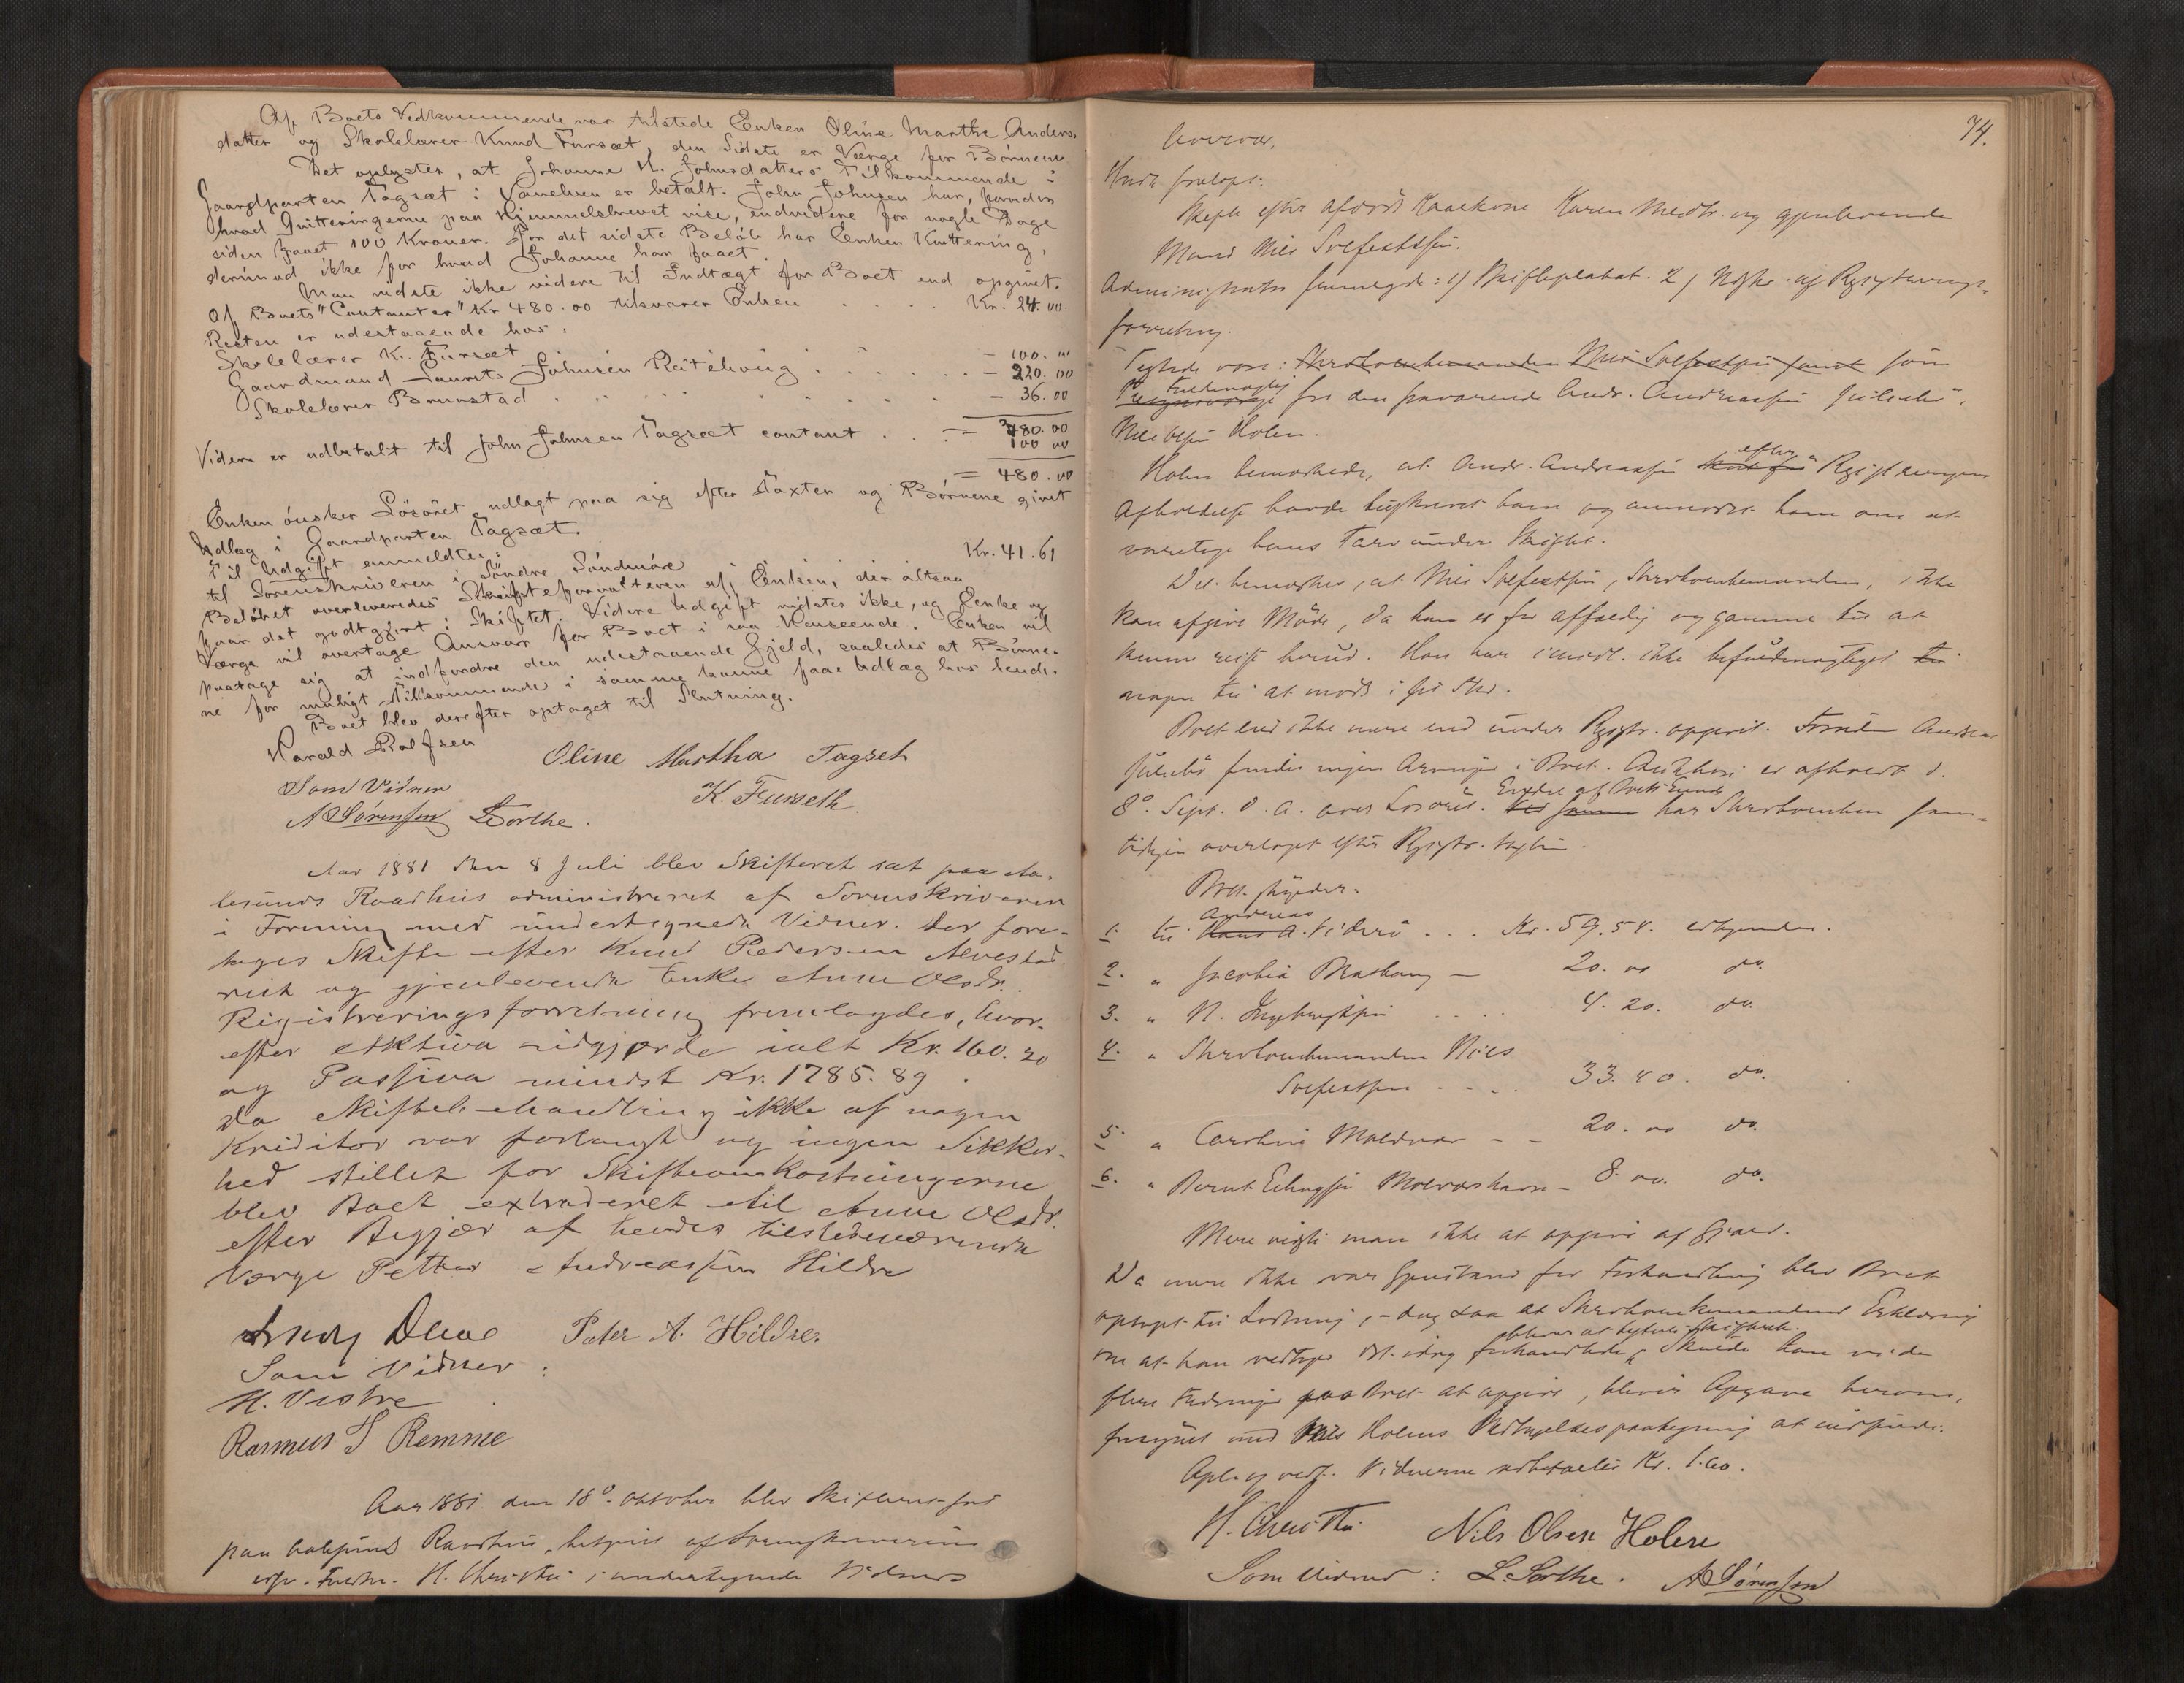 Af Boets Vedkommende var tilstede Enken Oline Marthe Anders-
datter og Skolelærer Knud Fursæt, den Sidste er Værge for Børnene
Det oplystes, at Johanne M. Johnsdatters Tilkommende i
Gaardparten Tagsæt i Vanelven er betalt. John Johnsen har, foruden
hvad Qvitteringerne paa Hjemmelsbrevet vise, endvidere for nogle Dage
siden faaet 100 Kroner. For det sidste Beløb har Enken Kvittering,
derimod ikke for hvad Johanne har faaet.
Man vidste ikke videre til Indtægt for Boet end opgivet.
Af Boets "Contanter" Kr 480.00 tilsvarer Enken . . . . Kr. 24.00
Resten er udestaaende hos:
Skolelærer K. Fursæt — 100. "
Gaardmand Laurits Johnsen . . . — 220.00
Skolelærer Brunstad . . . — 36.00
380.00
Videre er udbetalt til John Johnsen Tagsæt contant . . . 100 00
= 480.00
Enken ønsker Løsøret udlagt paa sig efter Taxten og Børnene givet
Udlæg i Gaardparten Tagsæt
Til Udgift anmeldtes:
til Sorenskriveren i Søndre Søndmøre Kr. 41.61
Beløbet overleveredes Skifteforvalteren af Enken, der altsaa
faar det godtgjort i Skiftet. Videre Udgift vidstes ikke, og Enke og
Værge vil overtage Ansvar for Boet i saa Henseende. Enken vil
paatage sig at indfordre den udestaaende Gjeld, saaledes at Børne-
ne for muligt Tilkommende i samme kunne faae Udlæg hos hende.
Boet blev derefter optaget til Slutning.
Harald Rolfsen Oline Martha Tagseth
Som Vidner K. Furseth
A Sørensen L Sorthe.
Aar 1881 den 8 Juli blev Skifteret sat paa Aa-
lesunds Raadhus administreret af Sorenskriveren
i Forening med undertegnede Vidner. Der fore-
toges Skifte efter Knud Pedersen Alvestad
vik og gjenlevende Enke Anne Olsdr.
Registreringsforretning fremlagdes, hvor-
efter Aktiva udgjorde ialt Kr. 160.20
og Passiva mindst Kr. 1785.89.
Da Skiftebehandling ikke af nogen
Kreditor var forlangt og ingen Sikker-
hed stillet for Skifteomkostningerne
blev Boet extraderet til Anne Olsdr.
efter Begjær af hendes tilstedeværende
Værge Petter Andreassen Hildre
Peter A. Hildre.
Som Vidner:
H. Vestre
Rasmus S Remme
Aar 1881 den 18de Oktober blev Skifteret sat
paa Aalesunds Raadhus, betjent af Sorenskriverens
edsv. Fuldm. H. Christie i undertegnede Vidners
74.
Overvær.
Hvor foretoges:
Skifte efter afdøde Kaarkone Karen Nilsdtr. og gjenlevende
Mand Nils Solfestsen.
Administrator fremlagde: 1) Skifteplakat. 2) Udskr. af Registrerings-
forretning.
Tilstede var: Sterboenkemanden Nils Solfestsen samt som
Fuldmægtig for den fraværende Andr. Andreassen
Nils Olsen Holen.
Holen bemærkede, at Andr. Andreassen efter Registreringens
Afholdelse havde tilskrevet ham og anmodet ham om at
varetage hans Tarv under Skiftet.
Det bemærkes, at Nils Solfestsen, Sterboenkemanden, ikke
kan afgive Møde, da han er for affældig og gammel til at
kunne reise herud. Han har imidl. ikke befuldmægtiget
nogen til at møde i sit Sted.
Boet eied ikke mere end under Registr. opgivet. Foruden Andreas
findes ingen Arvinger i Boet. Auktion er afholdt d.
8de Sept. d. A. over Løsøret. Endel af Boets Eiende har Sterboenken sam-
tidigen overtaget efter Registr. taxten.
Boet skylder.
1. til Andreas A. Viderø . . . Kr. 59.54. erkjendes.
2. " Jacobia — 20.00 do.
3. " N. Ingebrigtsen . . . . 4.20. do.
4. " Sterboenkemanden Nils
Solfestsen . . . . 33.40. do.
5. " Caroline Moldvær - - 20.00 do.
6. " Bernt Moldvær - 8.00. do.
Mere vidste man ikke at opgive af Gjæld.
Da mere ikke var Gjenstand for Forhandling blev Boet
optaget til Slutning, - dog saa at Sterboenkemandens Erklæring
om at han vedtager det idag forhandlede, bliver at tilstille Skifteret. Skulde han vide
flere Fordringer paa Boet at opgive, bliver Opgave herom,
forsynet med Nils Holens Vedtagelsespaategning at indsende.
Oplæst og vedt. Vidnerne udbetaltes Kr. 1.60.
H. Christie Nils Olsen Holen
Som Vidner: L. Sorthe. A Sørensen